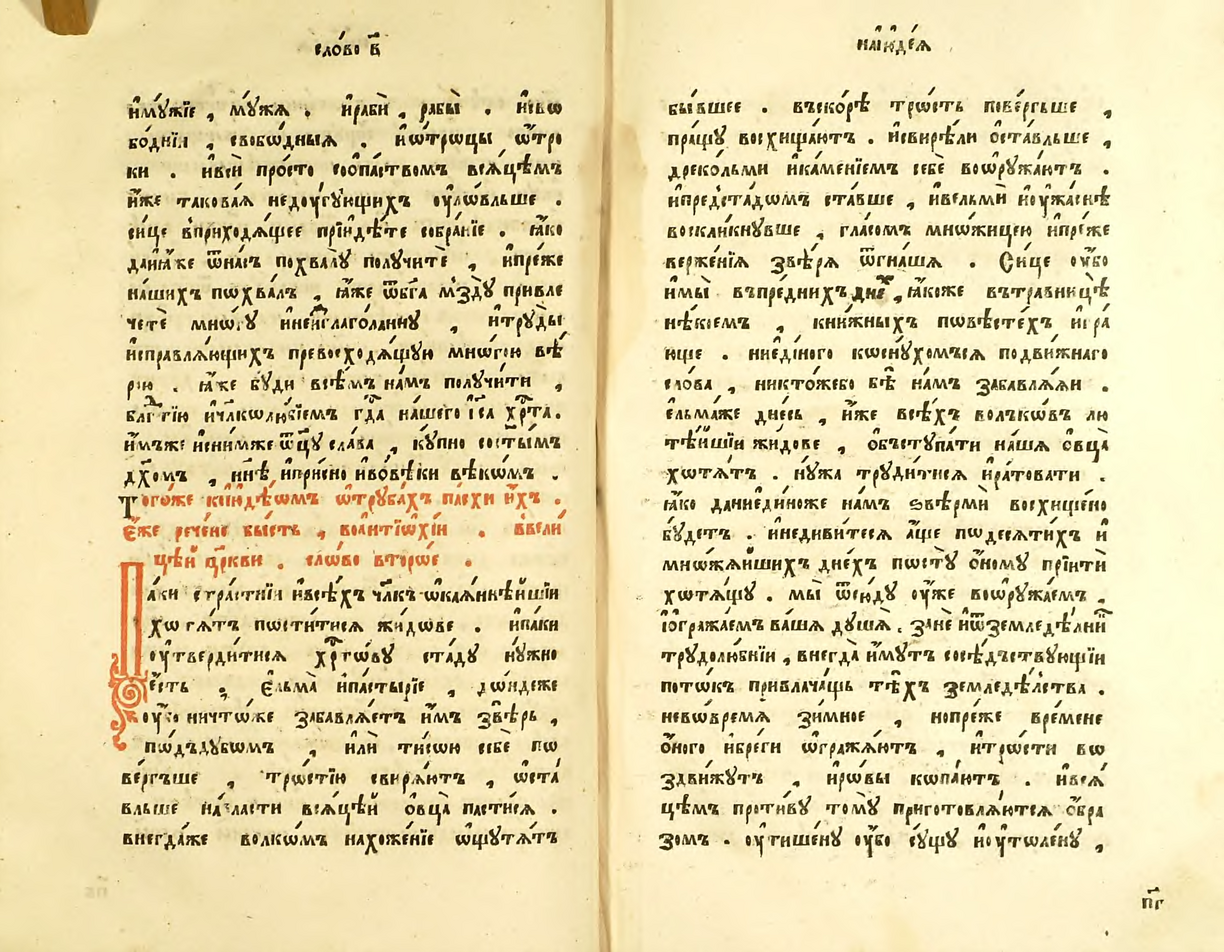 сло́во в҃
и҆му́жїе , му́жѧ . и҆рабѝ , рабы̀ . и҆сво
бо́днїи , свобѡ́дныѧ . и҆ѡ҆́трѡцы ѿтро
ки . и҆всѝ про́сто соопа́ствомъ всѧ́цѣмъ
и҆́же такова́ѧ недоуѓꙋющихъ оу҆ло́вльше .
си́це впрїходѧ́щее прїидѣ́те собра́нїе . ꙗ҆́ко
да́и҆ꙗ҆́же ѿна́съ похвалꙋ̀ полꙋчитѐ , и҆пре́же
на́шихъ пѡхва́лъ , ꙗ҆́же ѿбг҃а мьздꙋ̀ привле
четѐ мно́гꙋ и҆неи҆зглаго́ланнꙋ , и҆трꙋды̀
и҆справлѧ́ющихъ превосходѧ́щꙋю мно́гою вѣ́
рꙋ́ю . ꙗ҆́же бꙋ́ди всѣ́мъ на́мъ полꙋчи́ти ,
бл҃гтїю и҆чл҃колю́бїемъ гд҃а на́шего і҆с҃а хр҃та̀ .
и҆́мъже и҆сни́мже ѿц҃ꙋ сла́ва , кꙋ́пно сост҃ы́мъ
дх҃омъ , и҆нн҃ѣ и҆при́сно и҆вовѣ́ки вѣкѡ́мъ .
Того́же кїюде́ѡмъ ѿтрꙋба́хъ па́схи и҆́хъ .
є҆́же рече́но бы́сть , воа҆нтїѡхі́и . ввели́
цѣй цр҃кви . сло́во второ́е .
Па́ки стра́стнїи и҆всѣ́хъ чл҃къ ѡ҆каѧ́ннѣйшїи
хотѧ́тъ пости́тисѧ жи́дѡве . и҆па́ки
оу҆тверди́тисѧ хр҃то́вꙋ ста́дꙋ нꙋ́жно
є҆́сть . Є҆льма̀ и҆па́стырїе , до́ндеже
оу҆́бо ничто́же забавлѧ́етъ и҆̀мъ ꙁвѣ́рь ,
под̾дꙋ́бомъ , и҆лѝ ти́сою себѐ по
ве́ргъше , тро́стїю свирѧ́ютъ , ѡ҆ста́
вльше на́власти всѧ́цѣй ѻ҆вца̀ пасти́сѧ .
внегда́же волкѡ́мъ нахоже́нїе ѡ҆щꙋтѧ́тъ
наі҆ꙋде́ѧ
бы́вшее . въско́рѣ тро́сть пове́ргьше ,
пра́щꙋ восхища́ютъ . и҆свирѣ́ли ѻ҆ста́вльше ,
дреко́льми и҆ка́менїемъ себѐ воѡ҆рꙋжа́ютъ .
и҆предста́дѡмъ ста́вше , и҆ве́льми и҆оу҆жа́снѣ
воскли́кнꙋвше , гла́сомъ мно́жицею и҆пре́же
верже́нїѧ ꙁвѣ́рѧ ѿгна́шѧ . Си́це оу҆́бо
и҆мы̀ въпре́днихъ дн҃е , ꙗ҆́коже вътра́вницѣ
нѣ́коемъ , кни́жныхъ по́вѣстехъ и҆гра́
юще . ниедїного косну́хомъсѧ подви́жнаго
сло́ва , никто́жебо бѣ̀ на́мъ забавлѧ́ѧи .
є҆льма́же дне́сь , и҆́же всѣ́хъ во́лъковъ лю
тѣ́йшїи жи́дове , ѻ҆бъстꙋпа́ти на́шѧ ѻ҆вца̀
хотѧ́тъ . нꙋ́жа трꙋди́тисѧ и҆ратова́ти .
ꙗ҆́ко даниеди́ноже на́мъ ѕвѣрмѝ восхище́но
бꙋ́детъ . и҆недиви́тесѧ а҆́ще подесѧ́тихъ и҆
мно́жѧйшихъ дне́хъ постꙋ̀ ѻ҆́номꙋ прїитѝ
хотѧ́щꙋ . мы̀ ѿсю́дꙋ оу҆́же воѡ҆рꙋжа́емъ ,
і҆огражда́емъ ва́шѧ дꙋ́шѧ , ꙁане́ и҆ѿземледѣ́лнїи
трꙋдолю́бнїи , внегда̀ и҆́мꙋтъ сосѣ́дъствꙋющїи
пото́къ привлача́щь тѣ́хъ ꙁемледѣ́лства .
невовре́мѧ ꙁи́мное , нопре́же вре́мене
ѻ҆́ного и҆бре́ги ѡ҆гражѧ́ютъ , и҆тро́сти во
ꙁдви́жꙋтъ , и҆ро́вы копа́ютъ . и҆всѧ́
цѣмъ проти́вꙋ то́мꙋ приготовлѧ́ютсѧ ѻ҆́бра
ꙁомъ . оу҆тишенꙋ̀ оу҆́бо сꙋ́щꙋ и҆оу҆толе́нꙋ ,
п҃г